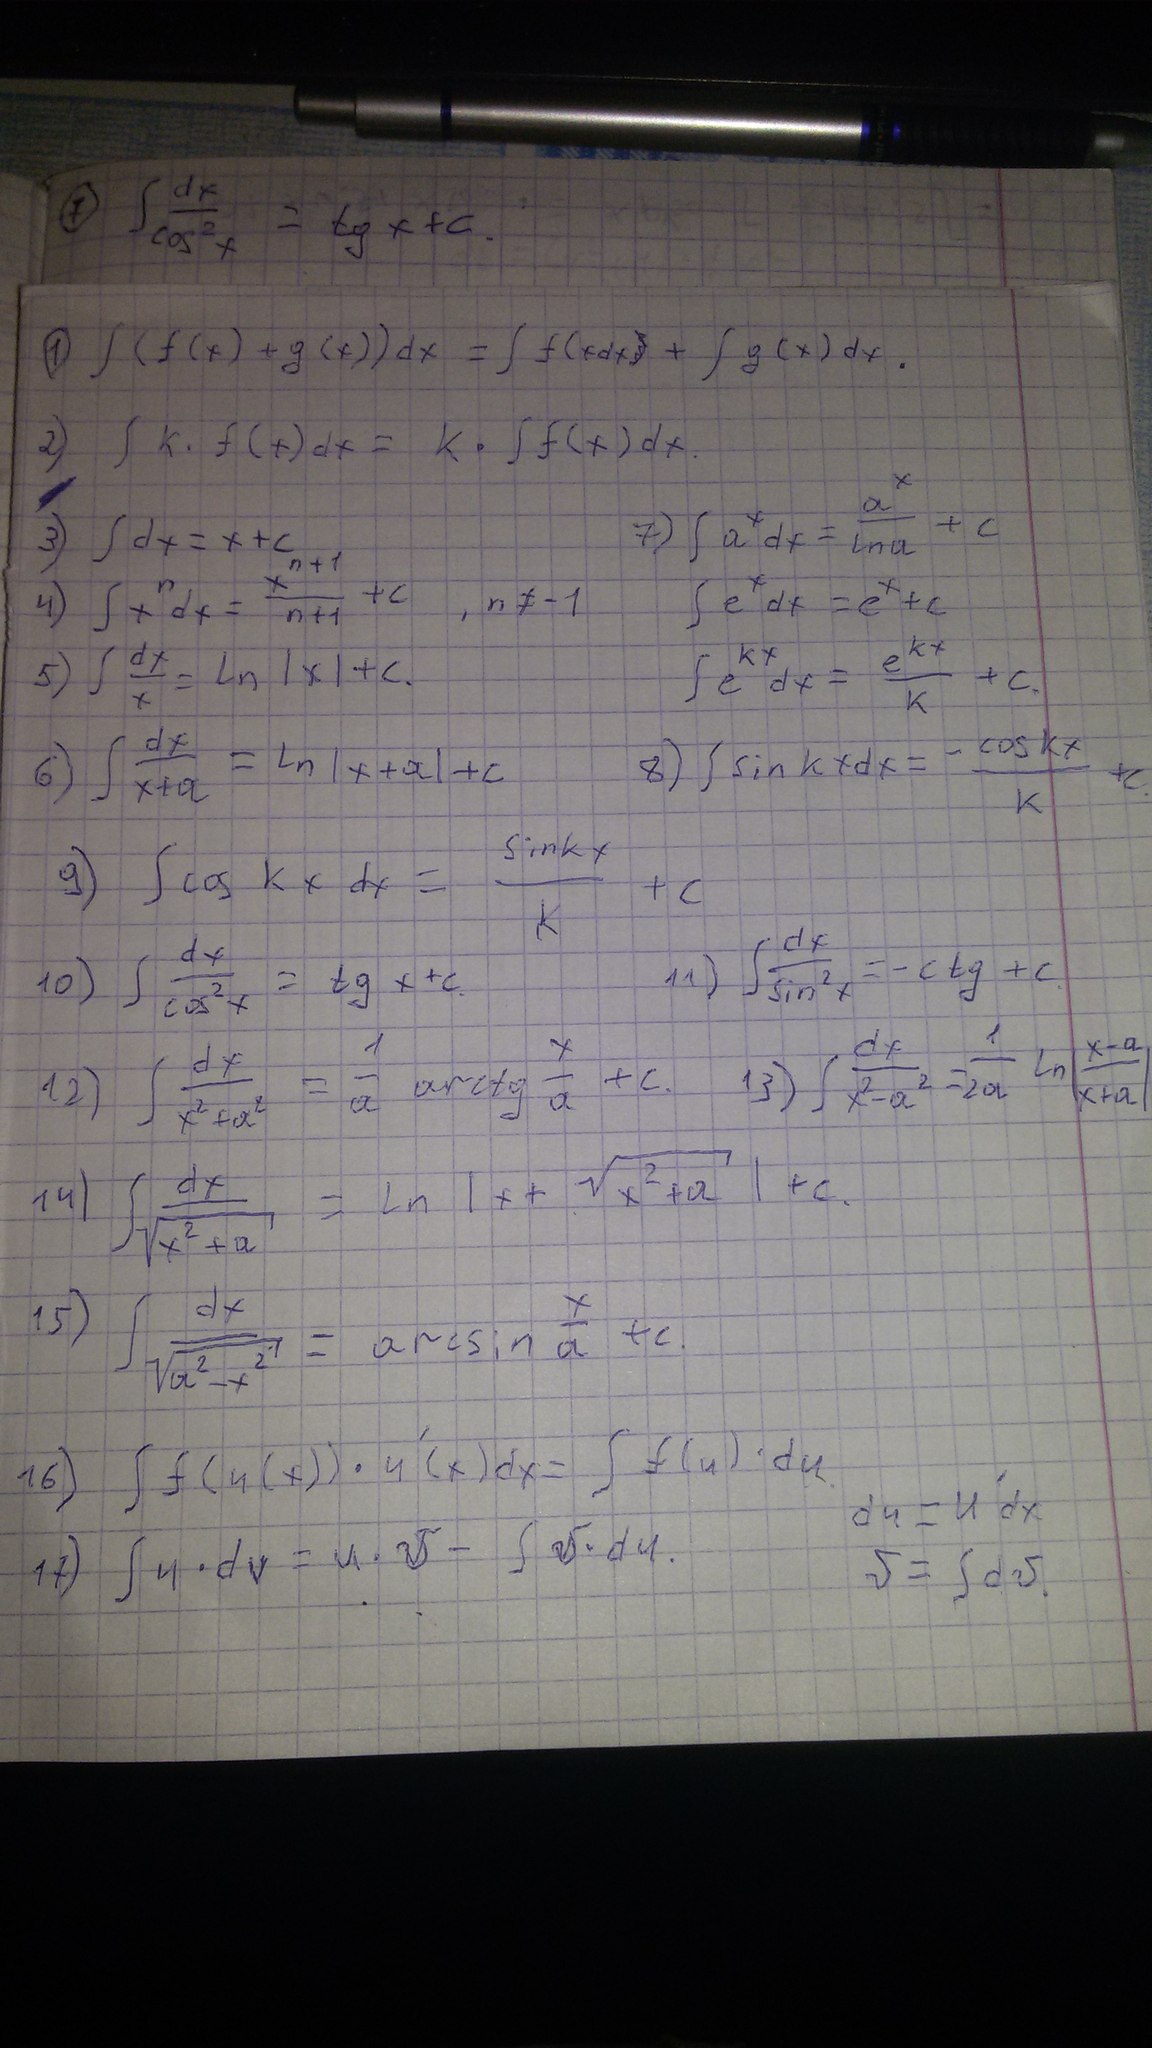 ① ∫ dx/cos²x = tg x + c.
① ∫ (f(x) + g(x)) dx = ∫ f(xdx) + ∫ g(x) dx.
2) ∫ k · f(x) dx = k · ∫ f(x) dx.
3) ∫ dx = x + c
7) ∫ aˣ dx = aˣ/ln a + c
4) ∫ xⁿ dx = xⁿ⁺¹/n+1 + c , n ≠ -1
∫ eˣ dx = eˣ + c
5) ∫ dx/x = ln |x| + c.
∫ e^{kx} dx = e^{kx}/k + c.
6) ∫ dx/x+a = ln |x+a| + c
8) ∫ sin kx dx = - cos kx/k + c.
9) ∫ cos kx dx = sin kx/k + c
10) ∫ dx/cos²x = tg x + c.
11) ∫ dx/sin²x = - ctg + c.
12) ∫ dx/x²+a² = 1/a arctg x/a + c.
13) ∫ dx/x²-a² = 1/2a ln |x-a/x+a|
14) ∫ dx/√(x²+a) = ln |x + √(x²+a)| + c.
15) ∫ dx/√(a²-x²) = arcsin x/a + c.
16) ∫ f(u(x)) · u'(x) dx = ∫ f(u) · du
du = u'dx
17) ∫ u · dv = u · v - ∫ v · du.
v = ∫ dv.